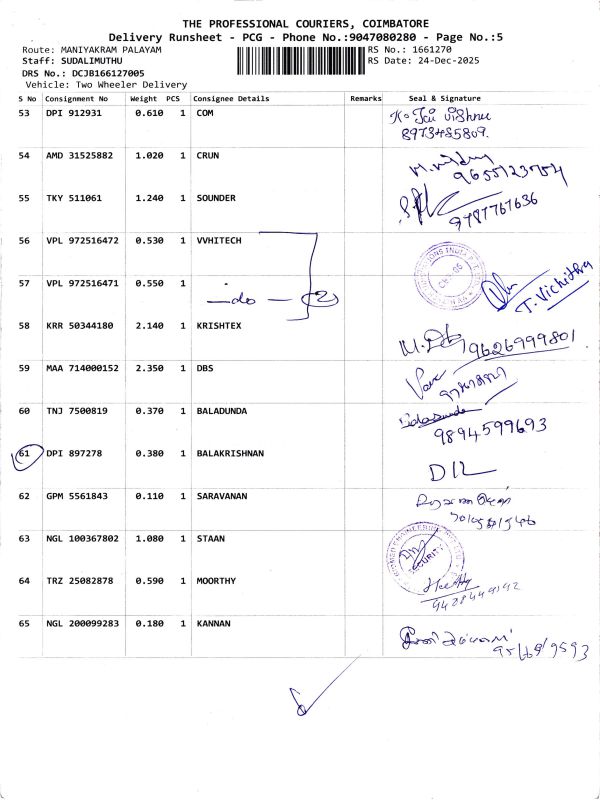 THE PROFESSIONAL COURIERS, COIMBATORE
Delivery Runsheet - PCG - Phone No.:9047080280 - Page No.:5
Route: MANIYAKRAM PALAYAM RS No.: 1661270
Staff: SUDALIMUTHU RS Date: 24-Dec-2025
DRS No.: DCJB166127005
Vehicle: Two Wheeler Delivery
S No Consignment No Weight PCS Consignee Details Remarks Seal & Signature
53 DPI 912931 0.610 1 COM
8973485809.
54 AMD 31525882 1.020 1 CRUN
9655123754
55 TKY 511061 1.240 1 SOUNDER
9787767636
56 VPL 972516472 0.530 1 VVHITECH
57 VPL 972516471 0.550 1 .
—do — (2)
T. Vichithra
58 KRR 50344180 2.140 1 KRISHTEX
9626999801
59 MAA 714000152 2.350 1 DBS
60 TNJ 7500819 0.370 1 BALADUNDA
9894599693
61 DPI 897278 0.380 1 BALAKRISHNAN
62 GPM 5561843 0.110 1 SARAVANAN
63 NGL 100367802 1.080 1 STAAN
SECURITY
64 TRZ 25082878 0.590 1 MOORTHY
65 NGL 200099283 0.180 1 KANNAN